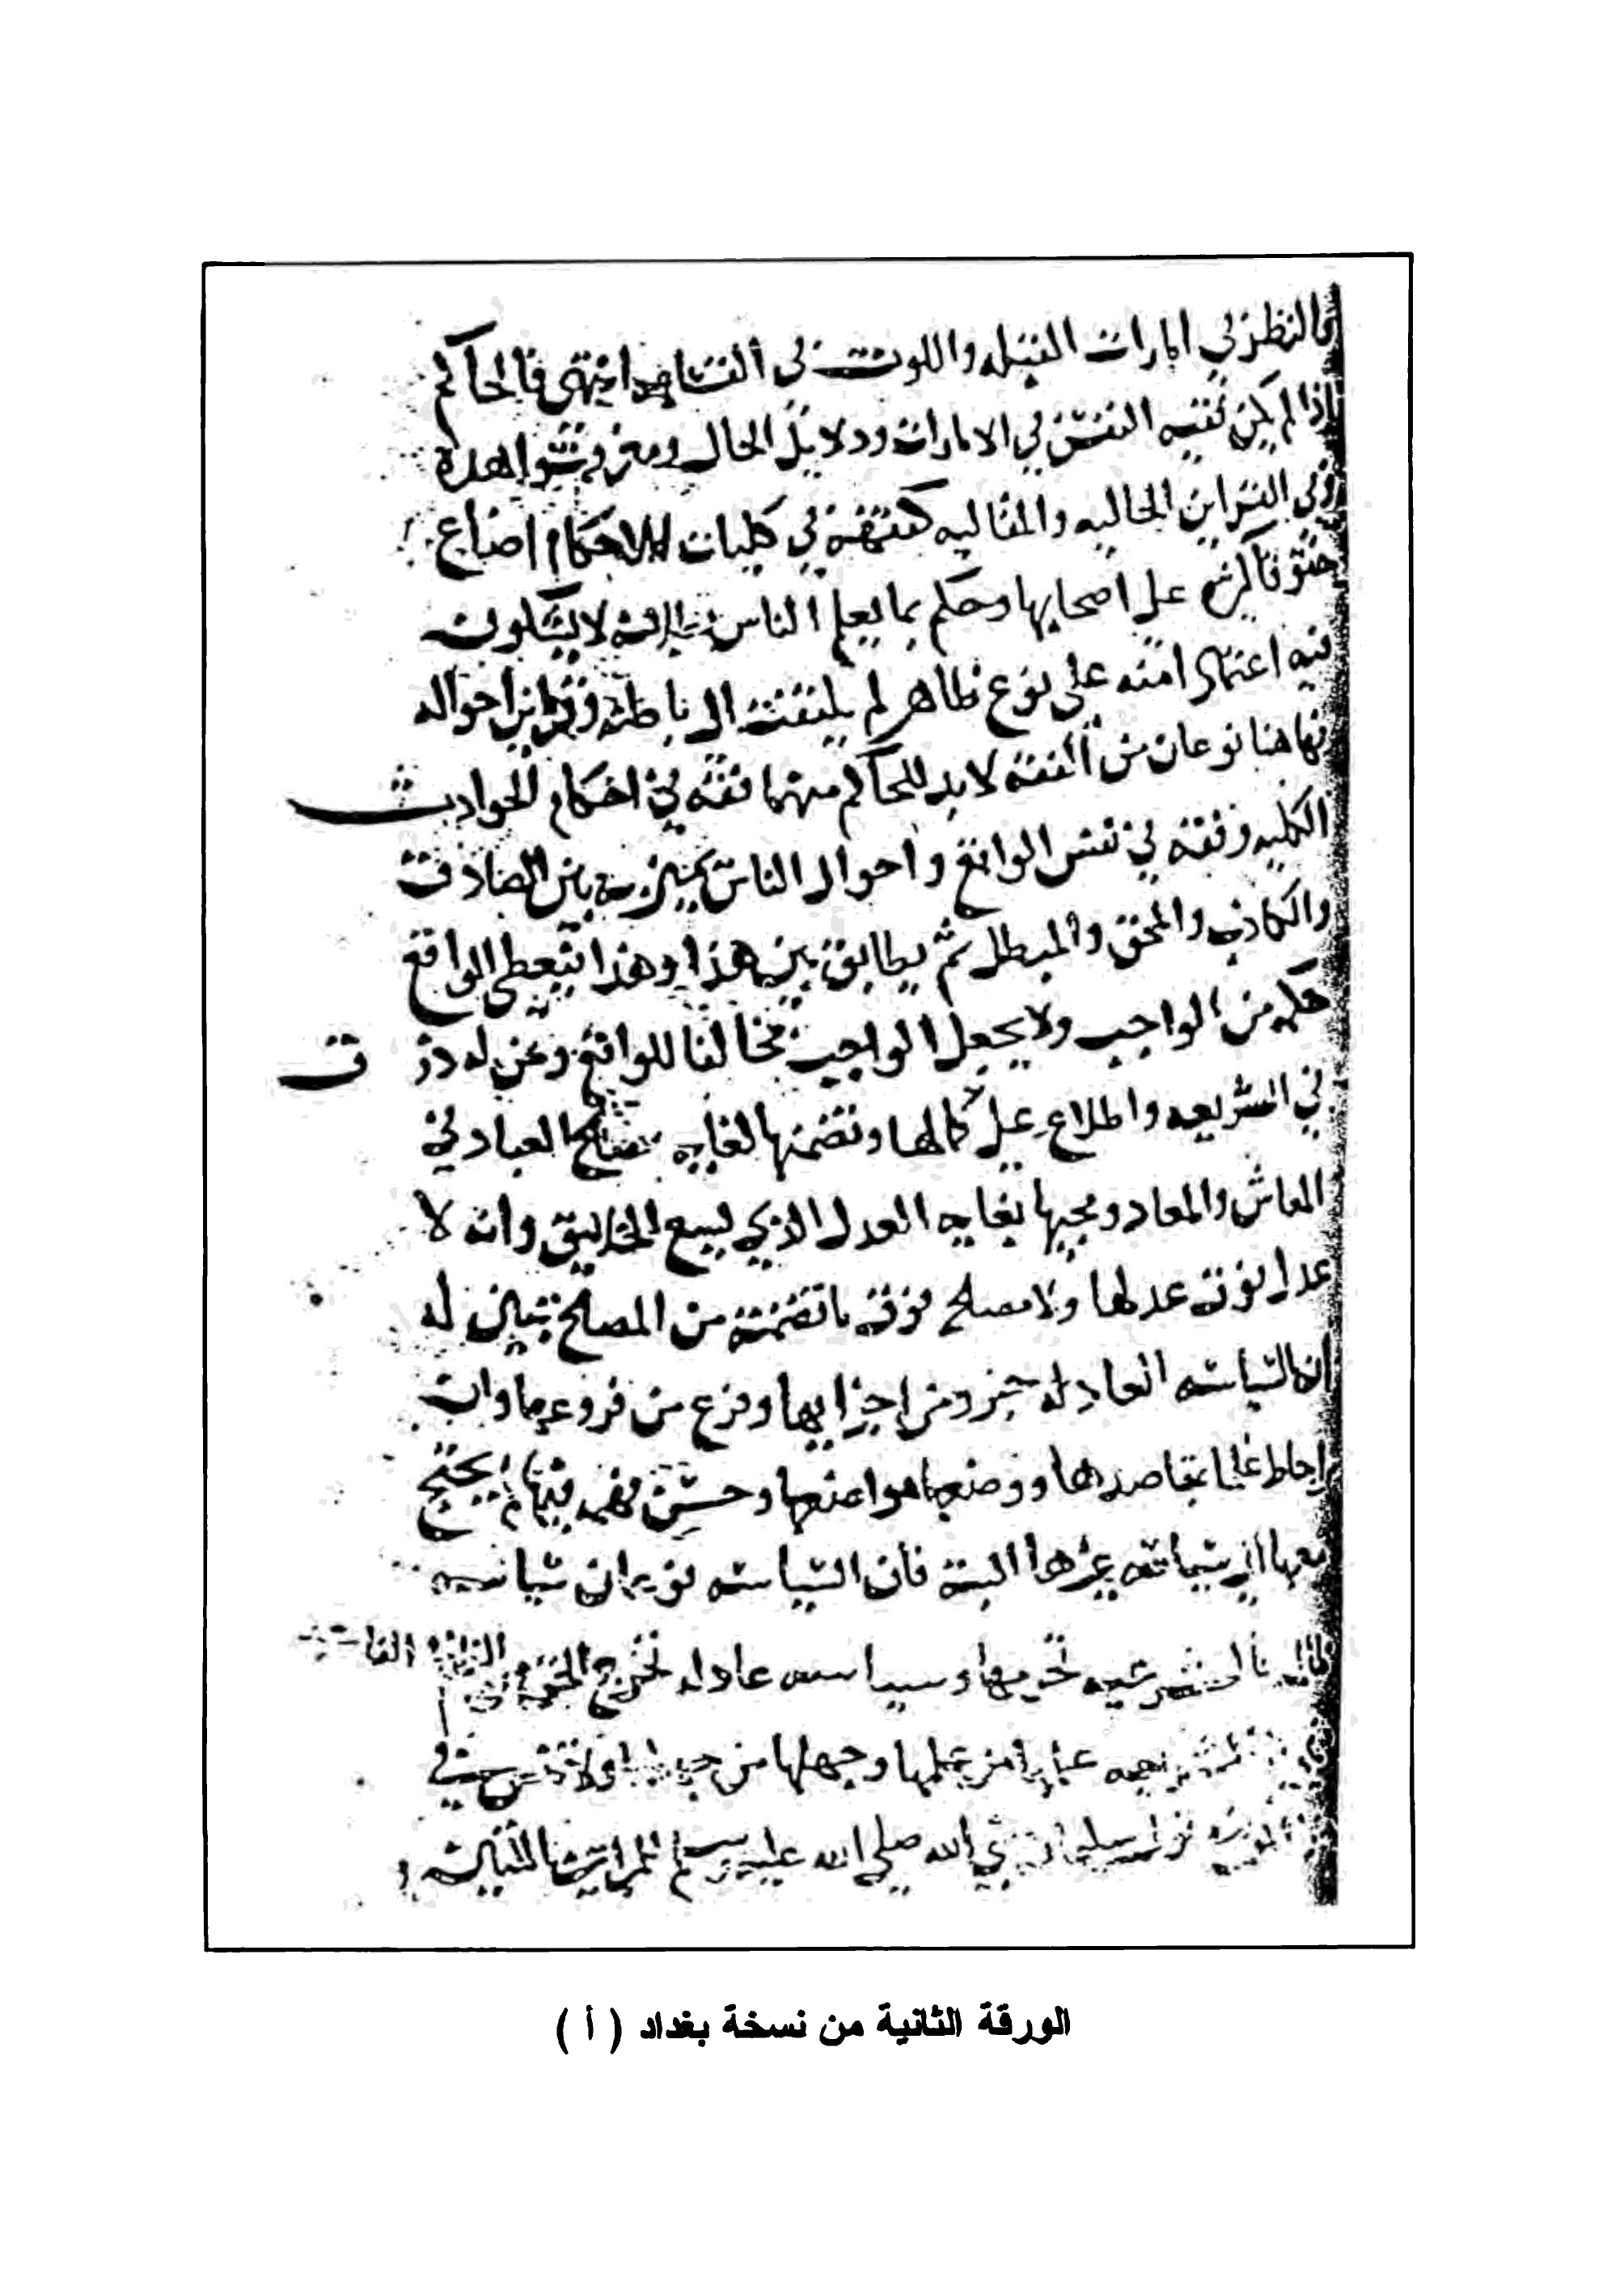 فالنظر في امارات القبله واللوث في القسامه انتهى فالحاكم
اذا لم يكن فقيه النفس في الامارات ودلايل الحال ومعرفة شواهده
وفي القراين الحاليه والمقاليه كفقهه في كليات الاحكام اضاع
حقوقا كثيره على اصحابها وحكم بما يعلم الناس بطلانه لا يشكون
فيه اعتمادا منه على نوع ظاهر لم يلتفت الى باطنه وقراين احواله
فهاهنا نوعان من الفقه لا بد للحاكم منهما فقه في احكام الحوادث
الكليه وفقه في نفس الواقع واحوال الناس يميز به بين الصادق
والكاذب والمحق والمبطل ثم يطابق بين هذا وهذا فيعطي الواقع
حكمه من الواجب ولا يجعل الواجب مخالفا للواقع ومن له ذوق
في الشريعه واطلاع على كمالها وتضمنها لغايه مصالح العباد في
المعاش والمعاد ومجيها بغايه العدل الذي يسع الخلايق وانه لا
عدل فوق عدلها ولا مصلحه فوق ما تضمنته من المصالح تبين له
ان السياسه العادله جزو من اجزايها وفرع من فروعها وان
احاط علما بمقاصدها ووضعها مواضعها وحسن فهمه فيها لم يحتج
معها الى سياسه غيرها البته فان السياسه نوعان سياسه
ظالمه فالشريعه تحرمها وسياسه عادله تخرج الحق من الظالم الفاجر
الشريعه علمها من علمها وجهلها من جهلها ولا تنس في
سليمان نبي الله صلى الله عليه وسلم للمراتين اللتين
الورقة الثانية من نسخة بغداد ( أ )